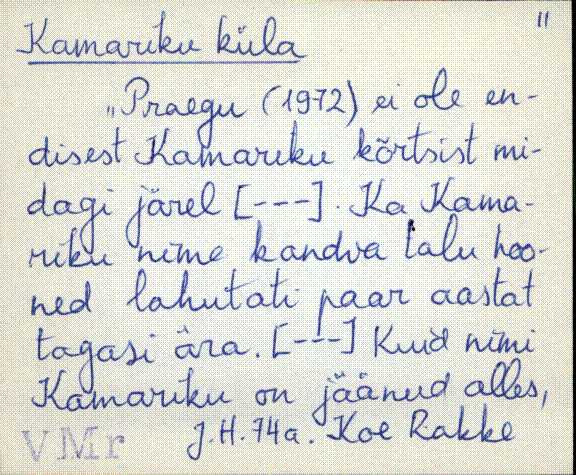 11
Kamariku küla
„Praegu (1972) ei ole en-
disest Kamariku kõrtsist mi-
dagi järel [---]. Ka Kama-
riku nime kandva talu hoo-
ned lahutati paar aastat
tagasi ära. [---] Kuid nimi
Kamariku on jäänud alles,
VMr J.H. 74a. Koe Rakke